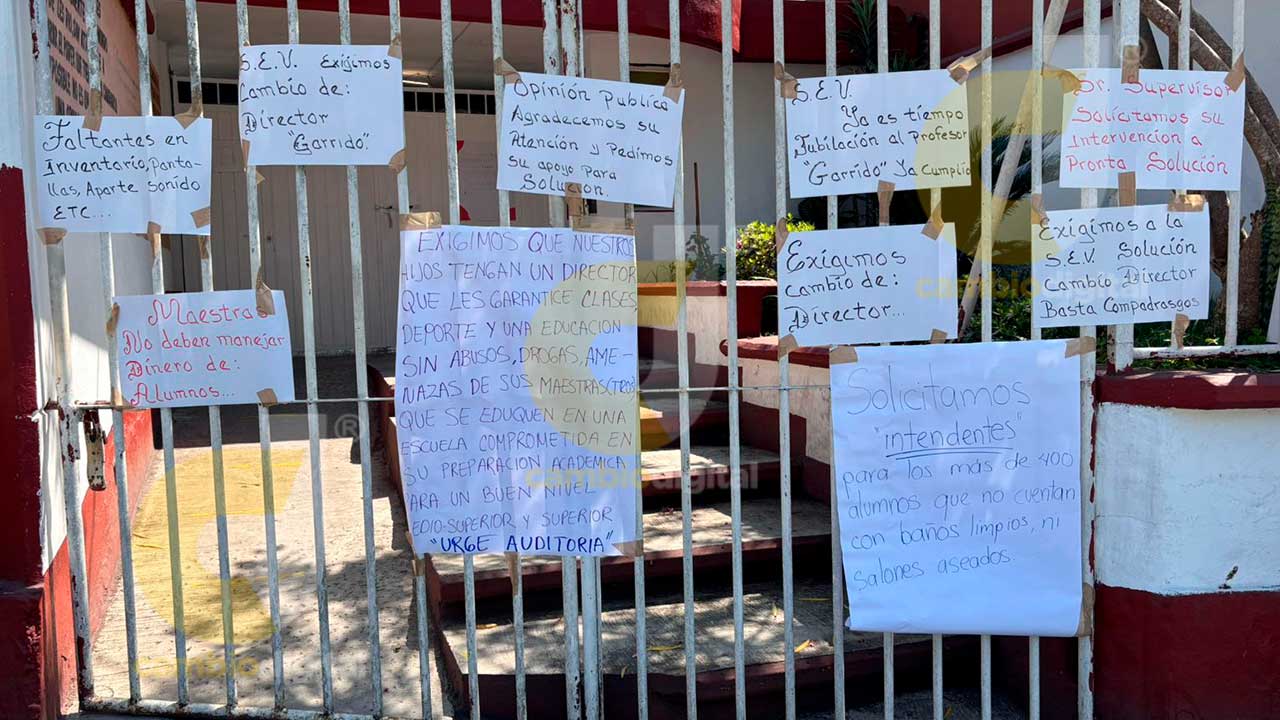 Faltantes en
Inventario, Panta-
llas, Aparte sonido
ETC...
S.E.V. Exigimos
Cambio de:
Director
"Garrido".
Opinión Publica
Agradecemos su
Atención y Pedimos
su apoyo para
Solución.
S.E.V.
Ya es tiempo
Jubilación al Profesor
"Garrido" Ya Cumplió
Sr. Supervisor
Solicitamos su
Intervención a
Pronta Solución
Maestras
No deben manejar
Dinero de:
Alumnos...
EXIGIMOS QUE NUESTROS
HIJOS TENGAN UN DIRECTOR
QUE LES GARANTICE CLASES,
DEPORTE Y UNA EDUCACION
SIN ABUSOS, DROGAS, AME-
NAZAS DE SUS MAESTRAS(TROS)
QUE SE EDUQUEN EN UNA
ESCUELA COMPROMETIDA EN
SU PREPARACIÓN ACADEMICA
PARA UN BUEN NIVEL
EDIO-SUPERIOR Y SUPERIOR
"URGE AUDITORIA"
Exigimos
cambio de:
Director...
Exigimos a la
S.E.V. Solución
Cambio Director
Basta Compadrasgos
Solicitamos
"intendentes"
para los más de 400
alumnos que no cuentan
con baños limpios, ni
salones aseados.
cambiodigital